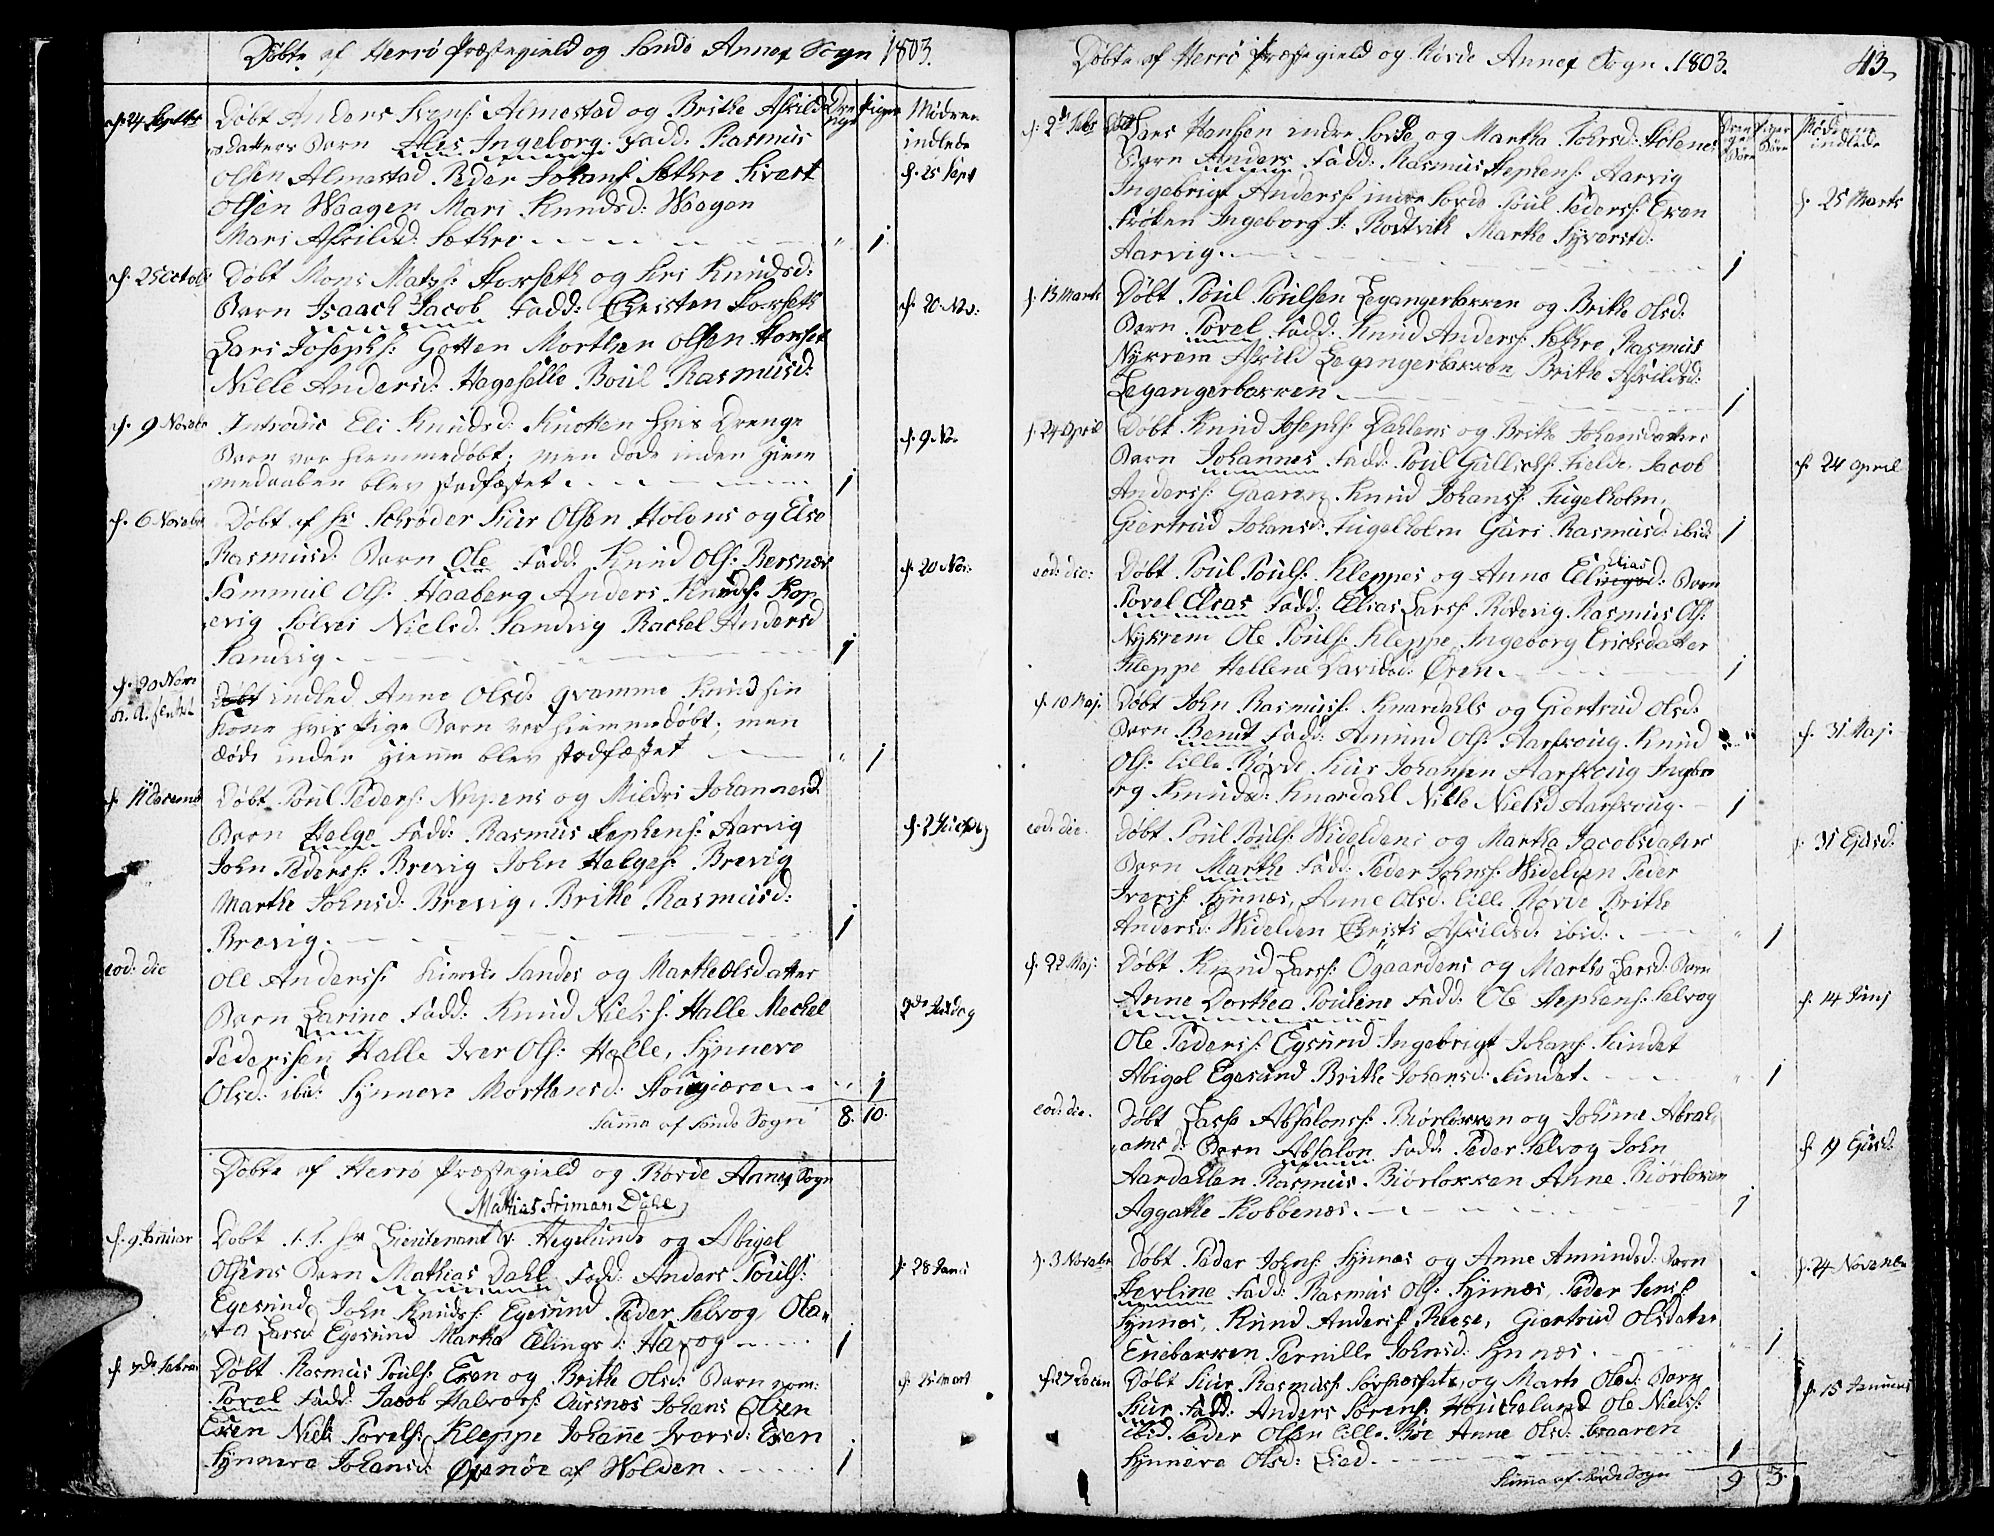 Døbte af Herrø Præstegield og Sande Annex Sogn 1803.
d. 24 Septbr Døbt Anders Svens: Almestad og Brithe Askilds
datters Barn Ales Ingeborg. Fadd. Rasmus
Olsen Almestad Peder Johans: Sæthre Sivert
Olsen Waagen Mari Knudsd: Waagen
Mari Askildsd: Sæthre 1.
Drenge Piger Mødrene
indlede
d. 25 Sept
d. 25 Octob Døbt Mons Matss: Horseth og Siri Knudsd:
Barn Isaach Jacob Fadd: Christen Horseth
Lars Josephs: Gotten Morthen Olsen Horset
Nille Andersd: Hageselle Boul Rasmusd:
d. 20 Nov:
d. 9 Novebr Introdus Eli Knudsd: Knotten hvis Drenge
Barn var hiemmedøbt; men døde inden hiem
medaaben blev stadfæstet 1
d. 9 No.
d. 6 Novebr Døbt af Hr Schrøder Siur Olsen Holens og Else
Rasmusd: Barn Ole Fadd: Knud Ols: Bersnæs
Sammul Ols: Haaberg Anders Knuds: Kop
ervig Solvei Nielsd. Sandvig Rachel Andersd
Sandvig 1
d. 20 Nov:
d. 20 Nov: indled Anne Olsd: Gramme Knud sin
Kone hvis Pige Barn var hiemmedøbt; men
døde inden hiemm blev stadfæstet 1
d. 11 Decemb Døbt Poul Peders: Nupens og Mildri Johannesd
Barn Helge Fadd: Rasmus Stephens: Aarvig
John Peders: Brevig John Helges: Brevig
Marthe Johnsd: Brevig, Brithe Rasmusd:
Brevig. 1
eod: die Ole Anderss: Kierste Sandes og Marthe Olsdatter
Barn Larine Fadd: Knud Niels: Halle Mechel
Pederssen Halle Iver Ols: Halle, Synneve
Olsd: ibid: Synneve Morthensd: Hougiære 1
2de Juledag
Summa af Sande Sogn 8. 10.
Døbte af Herrø Præstegield og Røvde Annex Sogn
(Mathias Friman Dahl)
d. 9 Januar Døbt S.T. Hr Lieutenant v. Hegelunds og Abigel
Olsens Barn Mathias Dahl Fadd: Anders Pouls:
Egesund, John Knuds: Egesund Peder Selvog, Ola-
ta Larsd Egesund Martha Ellings d: Havog 1
d. 28 Janr
d. 2de Febr Døbt Rasmus Pouls: Exen og Brithe Olsd: Barn nom:
Povel Fadd: Jacob Halvors: Aursnæs Johans Olsen
Exen Niels Povels: Kleppe Johanne Iversd: Exen
Synneve Johansd: Øxenøe af Wolden 1
d. 25 Mart
Døbte af Herrø Præstegield og Røvde Annex Sogn. 1803. 43
d: 2 Febr Døbt Lars Hansen indre Sorde og Martha Johnsd: Holenes
Barn Anders Fadd: Rasmus Stephens: Aarvig
Ingebrigt Anderss: indre Sorde Poul Peders: Exen
Torsten Ingeborg J: Rostvik Marthe Syversd:
Aarvig. 1
Drenge Børn Piger Børn Mødrene indlede
d. 25 Marts
d. 13 Marts Døbt Poul Poulsen Legangerbakken og Brithe Olsd:
Barn Povel Fadd. Knud Anders: Sæthre, Rasmus
Nykrem Askild Legangerbakken Brithe Askildsd:
Legangerbakken. 1
d. 24 April Døbt Knud Josephs: Dahlens og Brithe Johansdatters
Barn Johannes Fadd: Poul Gullichs: Fielde, Jacob
Anderss: Gaaren Knud Johanss: Fugelholm,
Giertrud Johansd: Fugelholm Guri Rasmusd: ibid: 1
d. 24 April
eod: die: Døbt Poul Pouls: Kleppes og Anne Elias d: Barn
Povel Elias Fadd: Elias Larss: Rødevig Rasmus Ols:
Nykrem Ole Pouls: Kleppe, Ingeborg Ericksdatter
Kleppe Hellene Davidsd: Øren. 1
d. 10 Maj: Døbt John Rasmuss: Knardahls og Giertrud Olsd:
Barn Bendt Fadd: Amund Ols: Aarskoug. Knud
Ols: Lille Røvde Siur Johansen Aarskoug Ingebo
rg Knudsd: Knardahl Nille Nielsd Aarskoug. 1
d. 31 Maj:
eod: die. Døbt Poul Pouls: Widelden og Martha Jacobsdatter
Barn Marthe Fadd: Peder Johns: Widelden Peder
Iverss: Synnæs, Anne Olsd. Lille Røvde Brithe
Andersd: Widelden Christi Askildsd. ibid: 1
d. 31 Ejusd:
d. 22 Maj: Døbt Knud Larss: Øgaardens og Marthe Larsd: Barn
Anne Dorthea Pouline Fadd: Ole Stephens: Selvog
Ole Peders: Egsund Ingebrigt Johans: Sundet
Abigel Egesund Brithe Johansd: Sundet. 1
d. 14 Junj
eod: die. Døbt Lasse Absalonss: Biørløkken og Johanne Abrah
ams d: Barn Absalon Fadd: Peder Selvog John
Aardahlen Rasmus Biørløkken Anne Biørløken
Aggathe Kobbenes. 1
d. 19 Ejusd:
d. 3 Novebr Døbt Peder Johns: Synnæs og Anne Amundsd: Barn
Severine Fadd: Rasmus Ols: Synnæs, Peder Jens:
Synnæs, Knud Anderss: Reese, Giertrud Olsdatter
Enebakken Pernille Johnsd: Synnæs. 1
d. 24 Novembr
d. 27 Decem Døbt Siur Rasmuss: Sørsæssæte, og Marte Olsd: Barn
Siur Fadd: Anders Sørens: Houchelund Ole Niels:
ibid. Peder Olsen Lille Røe Anne Olsd: Braaren
Synneve Olsd: Lied. 1
d. 15 Januar
Summa af Røvde Sogn 9 5